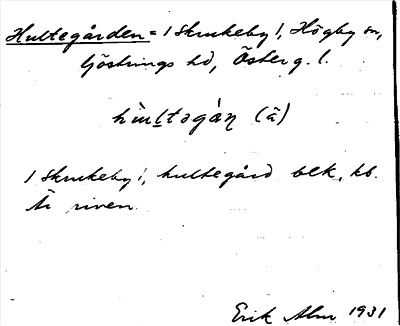 Hultegården = 1 Skrukeby 1, Högby sn,
Göstrings hd, Österg. l.
1 Skrukeby 1, hultegård blk. kb.
Är riven.
Erik Alm 1931